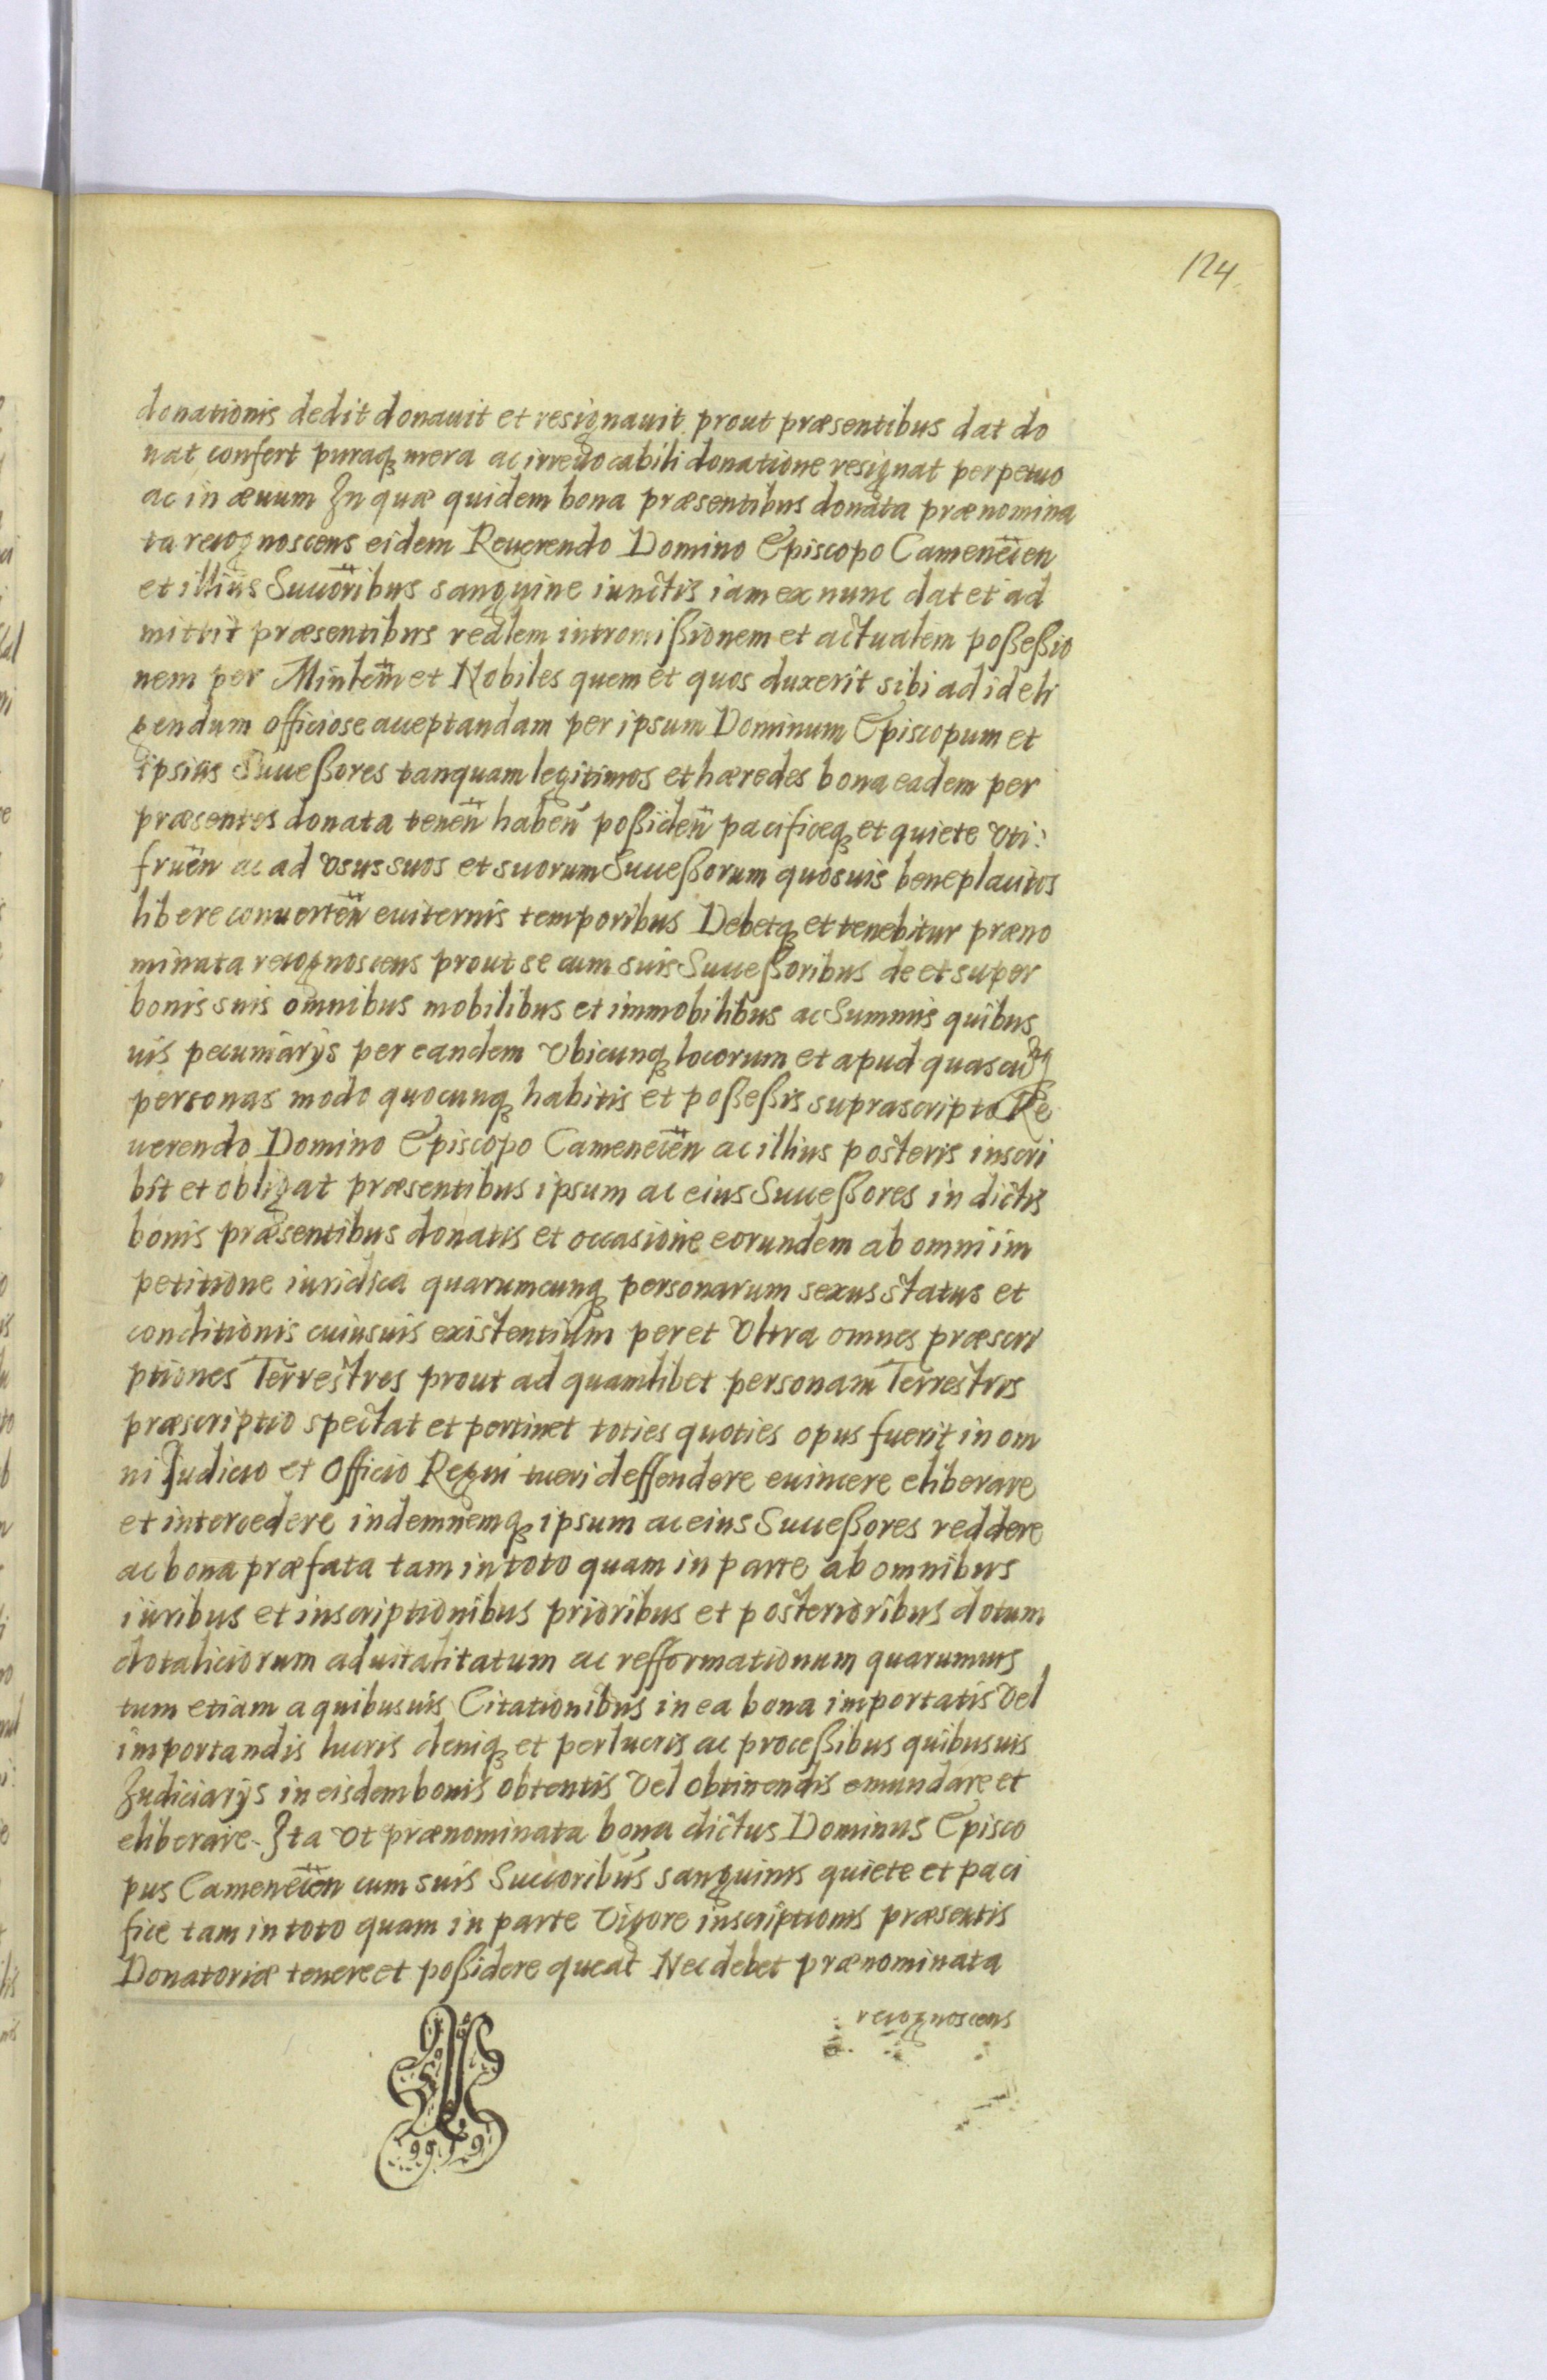 124
donationis dedit donauit et resignauit prout præsentibus dat do
nat confert puraq; mera ac irreuocabili donatione resignat perpetuo
ac in æuum In quæ quidem bona præsentibus donata prænomina
ta recognoscens eidem Reuerendo Domino Episcopo Camenecen̄
et illius Succoribus sanguine iunctis iam ex nunc dat et ad
mittit præsentibus realem intromißionem et actualem poßeßio
nem per Minlem̄ et Nobiles quem et quos duxerit sibi ad id eli
gendum officiose acceptandam per ipsum Dominum Episcopum et
ipsius Succeßores tanquam legitimos et hæredes bona eadem per
præsentes donata tenen̄ haben̄ poßiden̄ pacificeq; et quiete vti:
fruen̄ ac ad vsus suos et suorum Succeßorum quosuis beneplacitos
libere conuerten̄ euiternis temporibus Debetq; et tenebitur præno
minata recognoscens prout se cum suis Succeßoribus de et super
bonis suis omnibus mobilibus et immobilibus ac Summis quibus
uis pecuniarijs per eandem vbicunq; locorum et apud quascūq;
personas modo quocunq; habitis et poßeßis suprascripto Re
uerendo Domino Episcopo Camenecen̄ ac illius posteris inscri
bit et obligat præsentibus ipsum ac eius Succeßores in dictis
bonis præsentibus donatis et occasione eorundem ab omni im
petitione iuridica quarumcunq; personarum sexus status et
conditionis cuiusuis existentium per et vltra omnes præscri
ptiones Terrestres prout ad quamlibet personam Terrestris
præscriptio spectat et pertinet toties quoties opus fuerit in om
ni Judicio et Officio Regni tueri deffendere euincere eliberare
et intercedere indemnemq; ipsum ac eius Succeßores reddere
ac bona præfata tam in toto quam in parte ab omnibus
iuribus et inscriptionibus prioribus et posterioribus dotum
dotaliciorum aduitalitatum ac refformationum quarumuis
tum etiam a quibusuis Citationibus in ea bona importatis vel
importandis lucris deniq; et perlucris ac proceßibus quibusuis
Judiciarijs in eisdem bonis obtentis vel obtinendis emundare et
eliberare. Ita vt prænominata bona dictus Dominus Episco
pus Camenecen̄ cum suis Succoribus sanguinis quiete et paci
fice tam in toto quam in parte vigore inscriptionis præsentis
Donatoriæ tenere et poßidere queat Nec debet prænominata
recognoscens